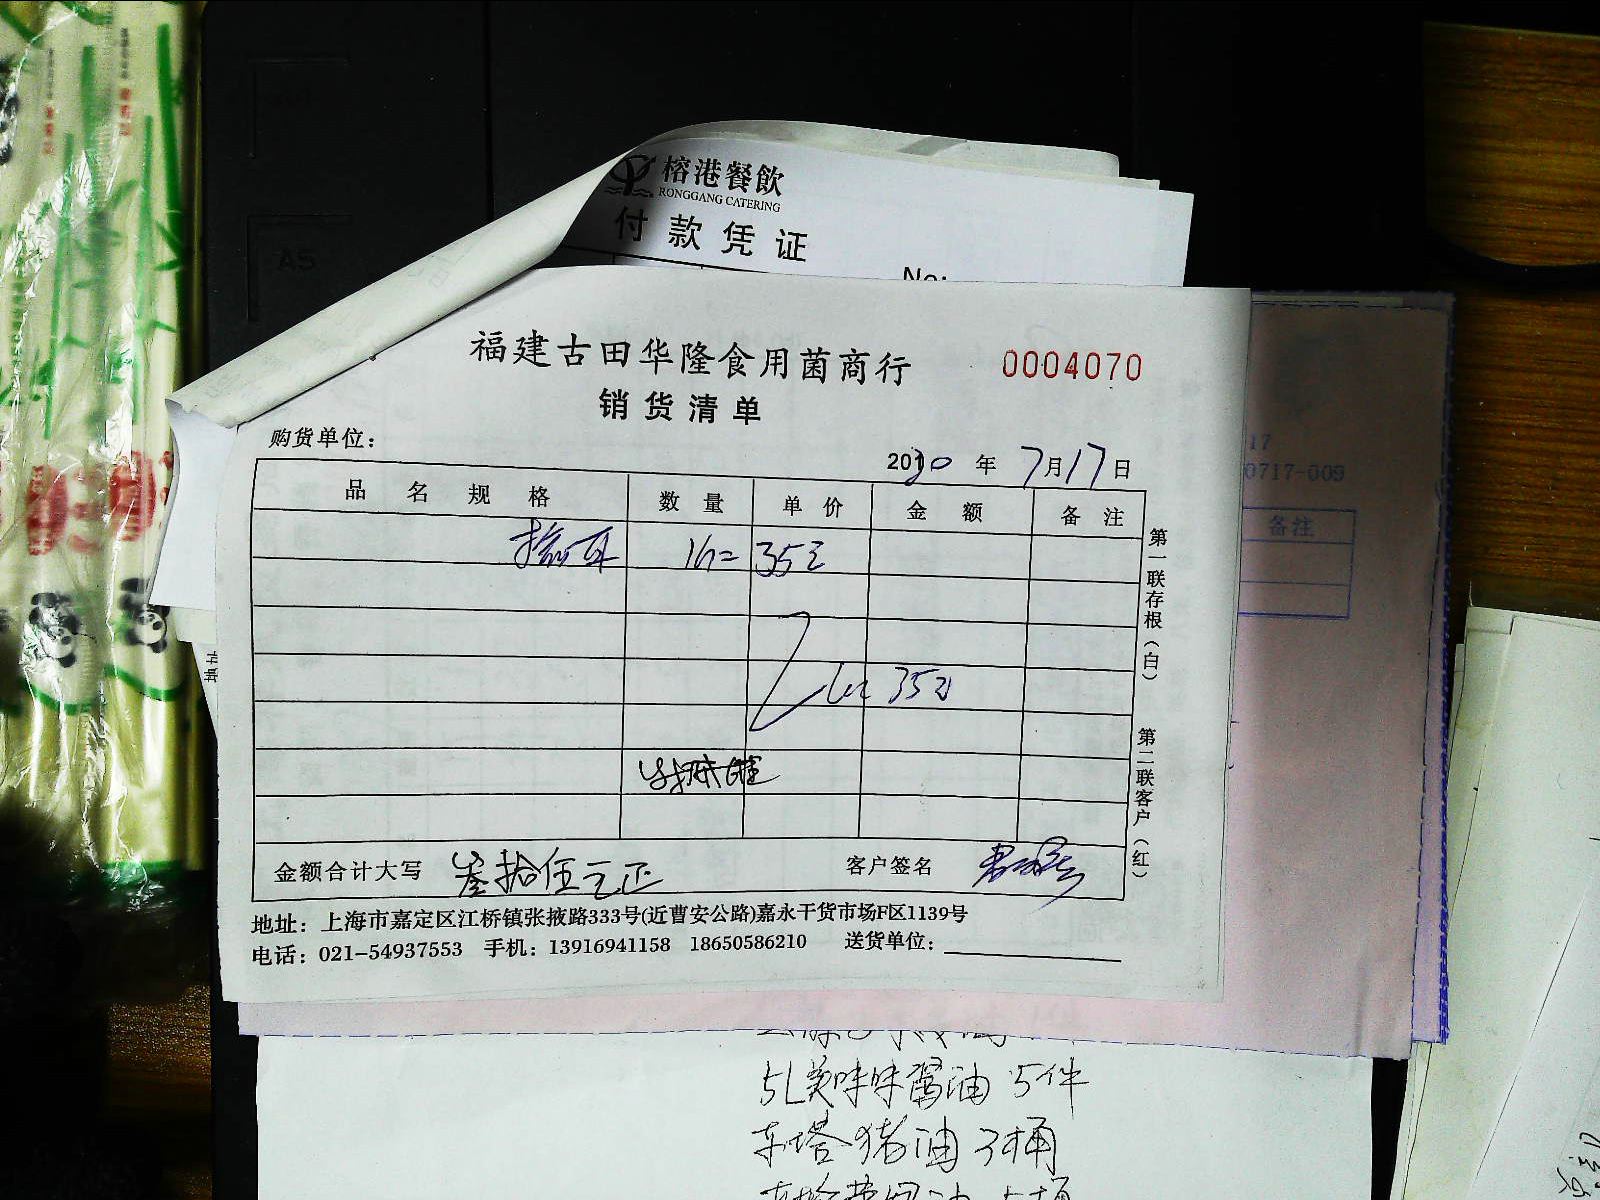 榕港餐飲
RONGGANG CATERING
付款凭证
No:
福建古田华隆食用菌商行
0004070
销货清单
购货单位：
2020 年 7月17日
品名规格 数量 单价 金额 备注
35元
35元
金额合计大写 叁拾伍元正 客户签名
地址：上海市嘉定区江桥镇张掖路333号(近曹安公路)嘉永干货市场F区1139号
电话：021-54937553 手机：13916941158 18650586210 送货单位：
第一联存根（白）
第二联客户（红）
17
0717-009
备注
A5
5L美味味醬油 5件
车塔猪油 3桶